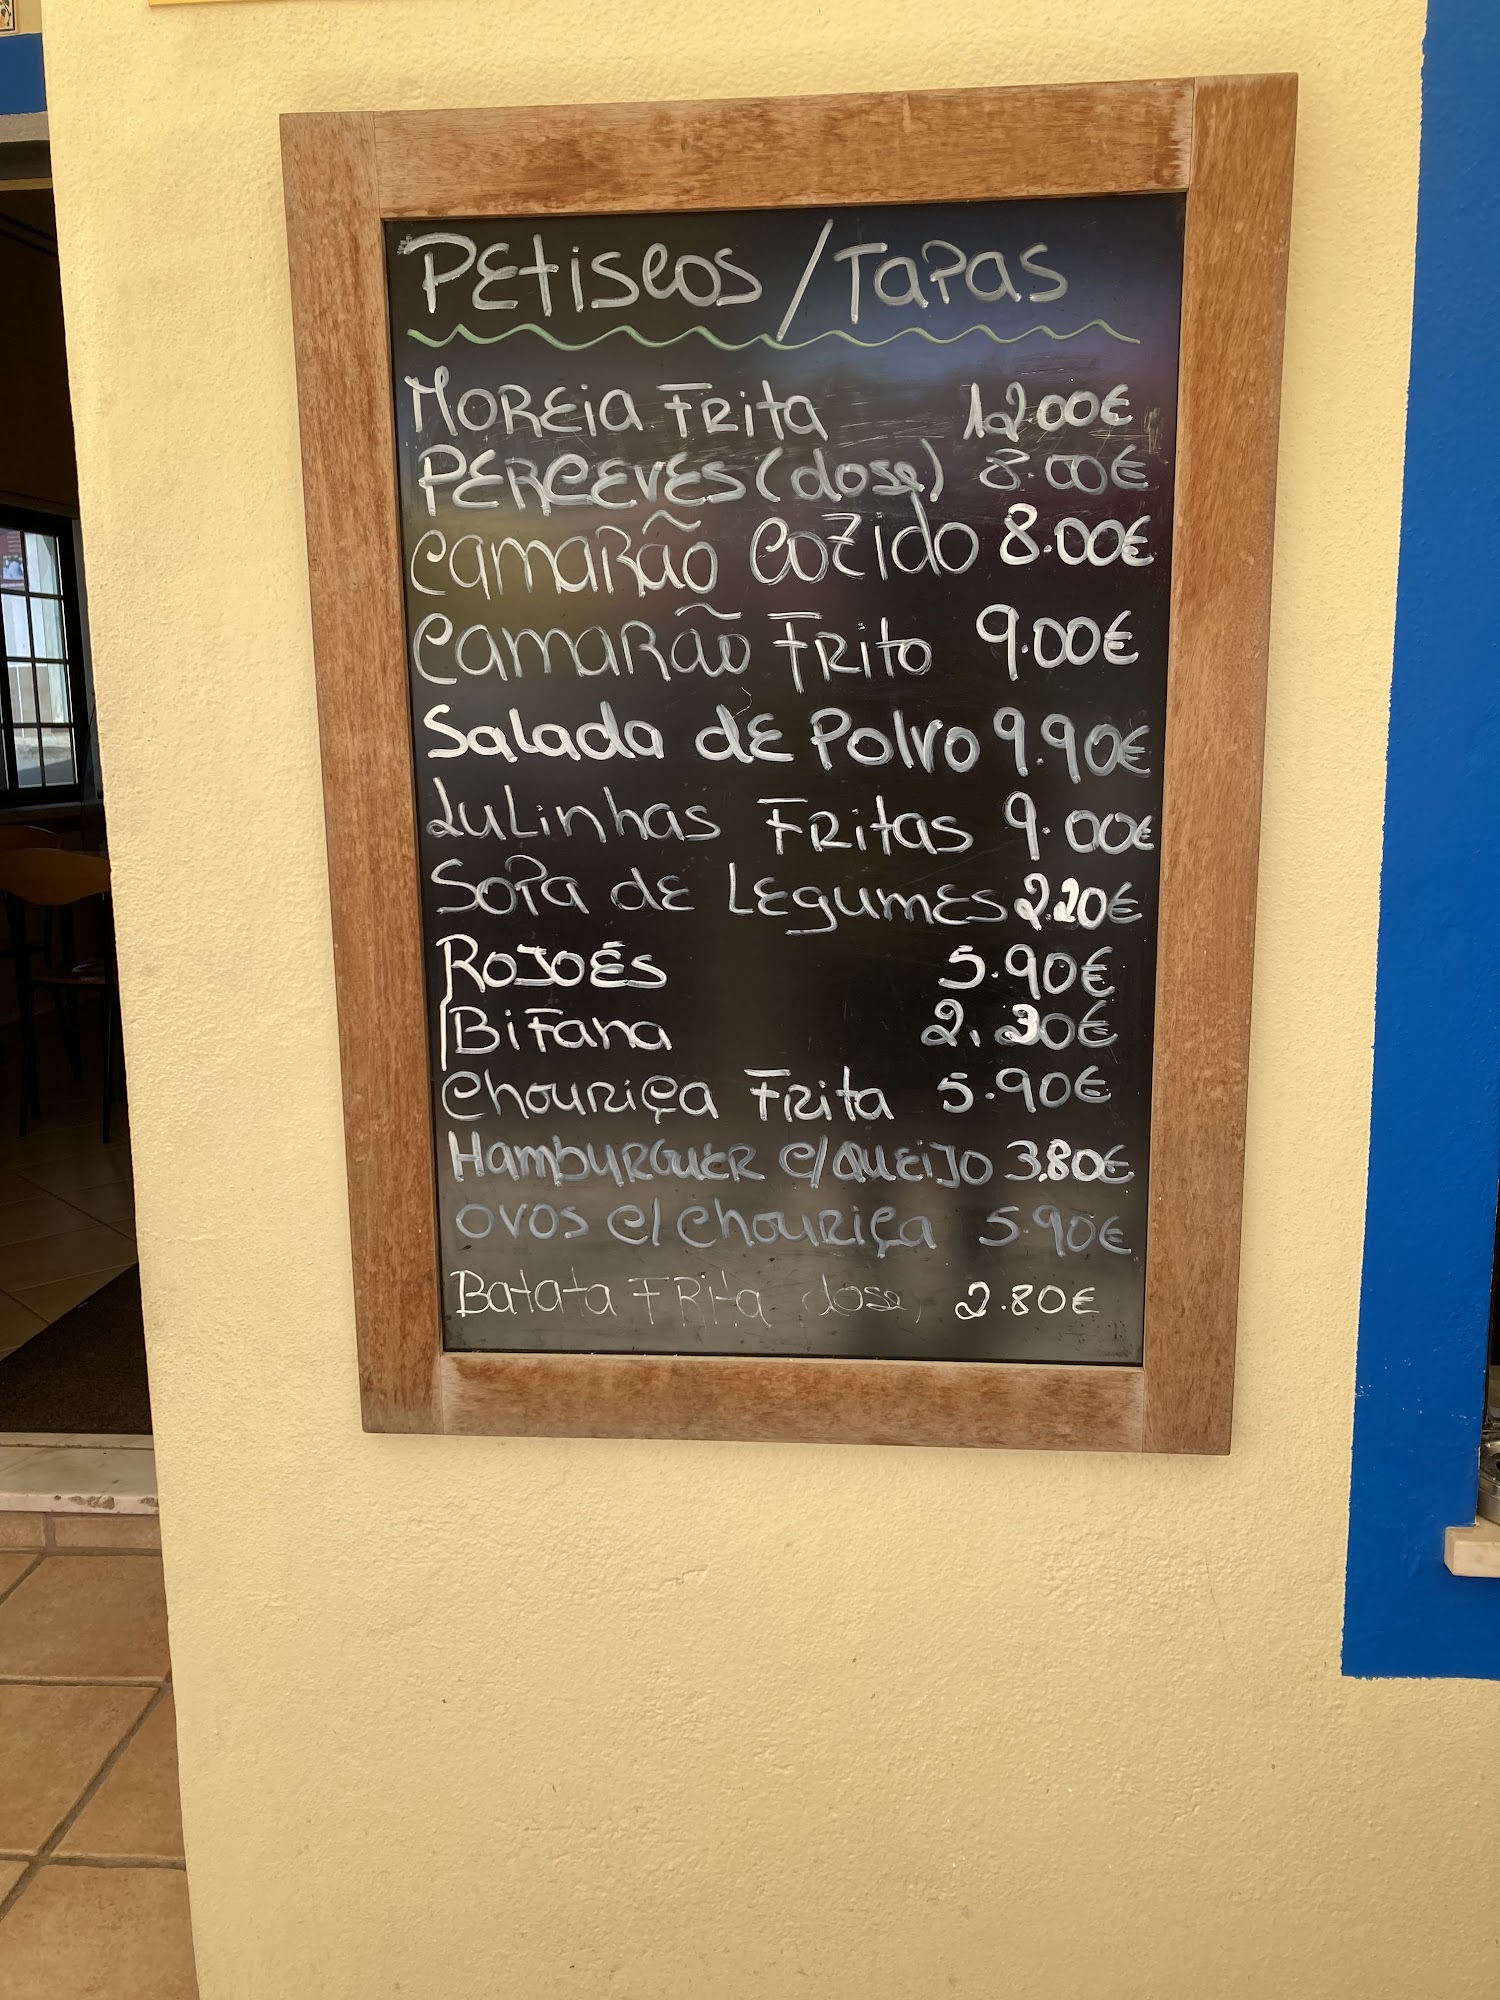 PEtiscos / TAPAS
MOREIA FRITA 12.00€
PERCEVES (dose) 8.00€
CAMARÃO COZIDO 8.00€
CAMARÃO FRITO 9.00€
Salada dE Polvo 9.90€
LuLinhas FRitas 9.00€
SOPA dE LEgumEs 2.20€
ROJOÉS 5.90€
BiFana 2.30€
Chouriça FRita 5.90€
HambURGUER c/ QUEIJO 3.80€
OVOS c/ chouriça 5.90€
Batata FRita dose, 2.80€